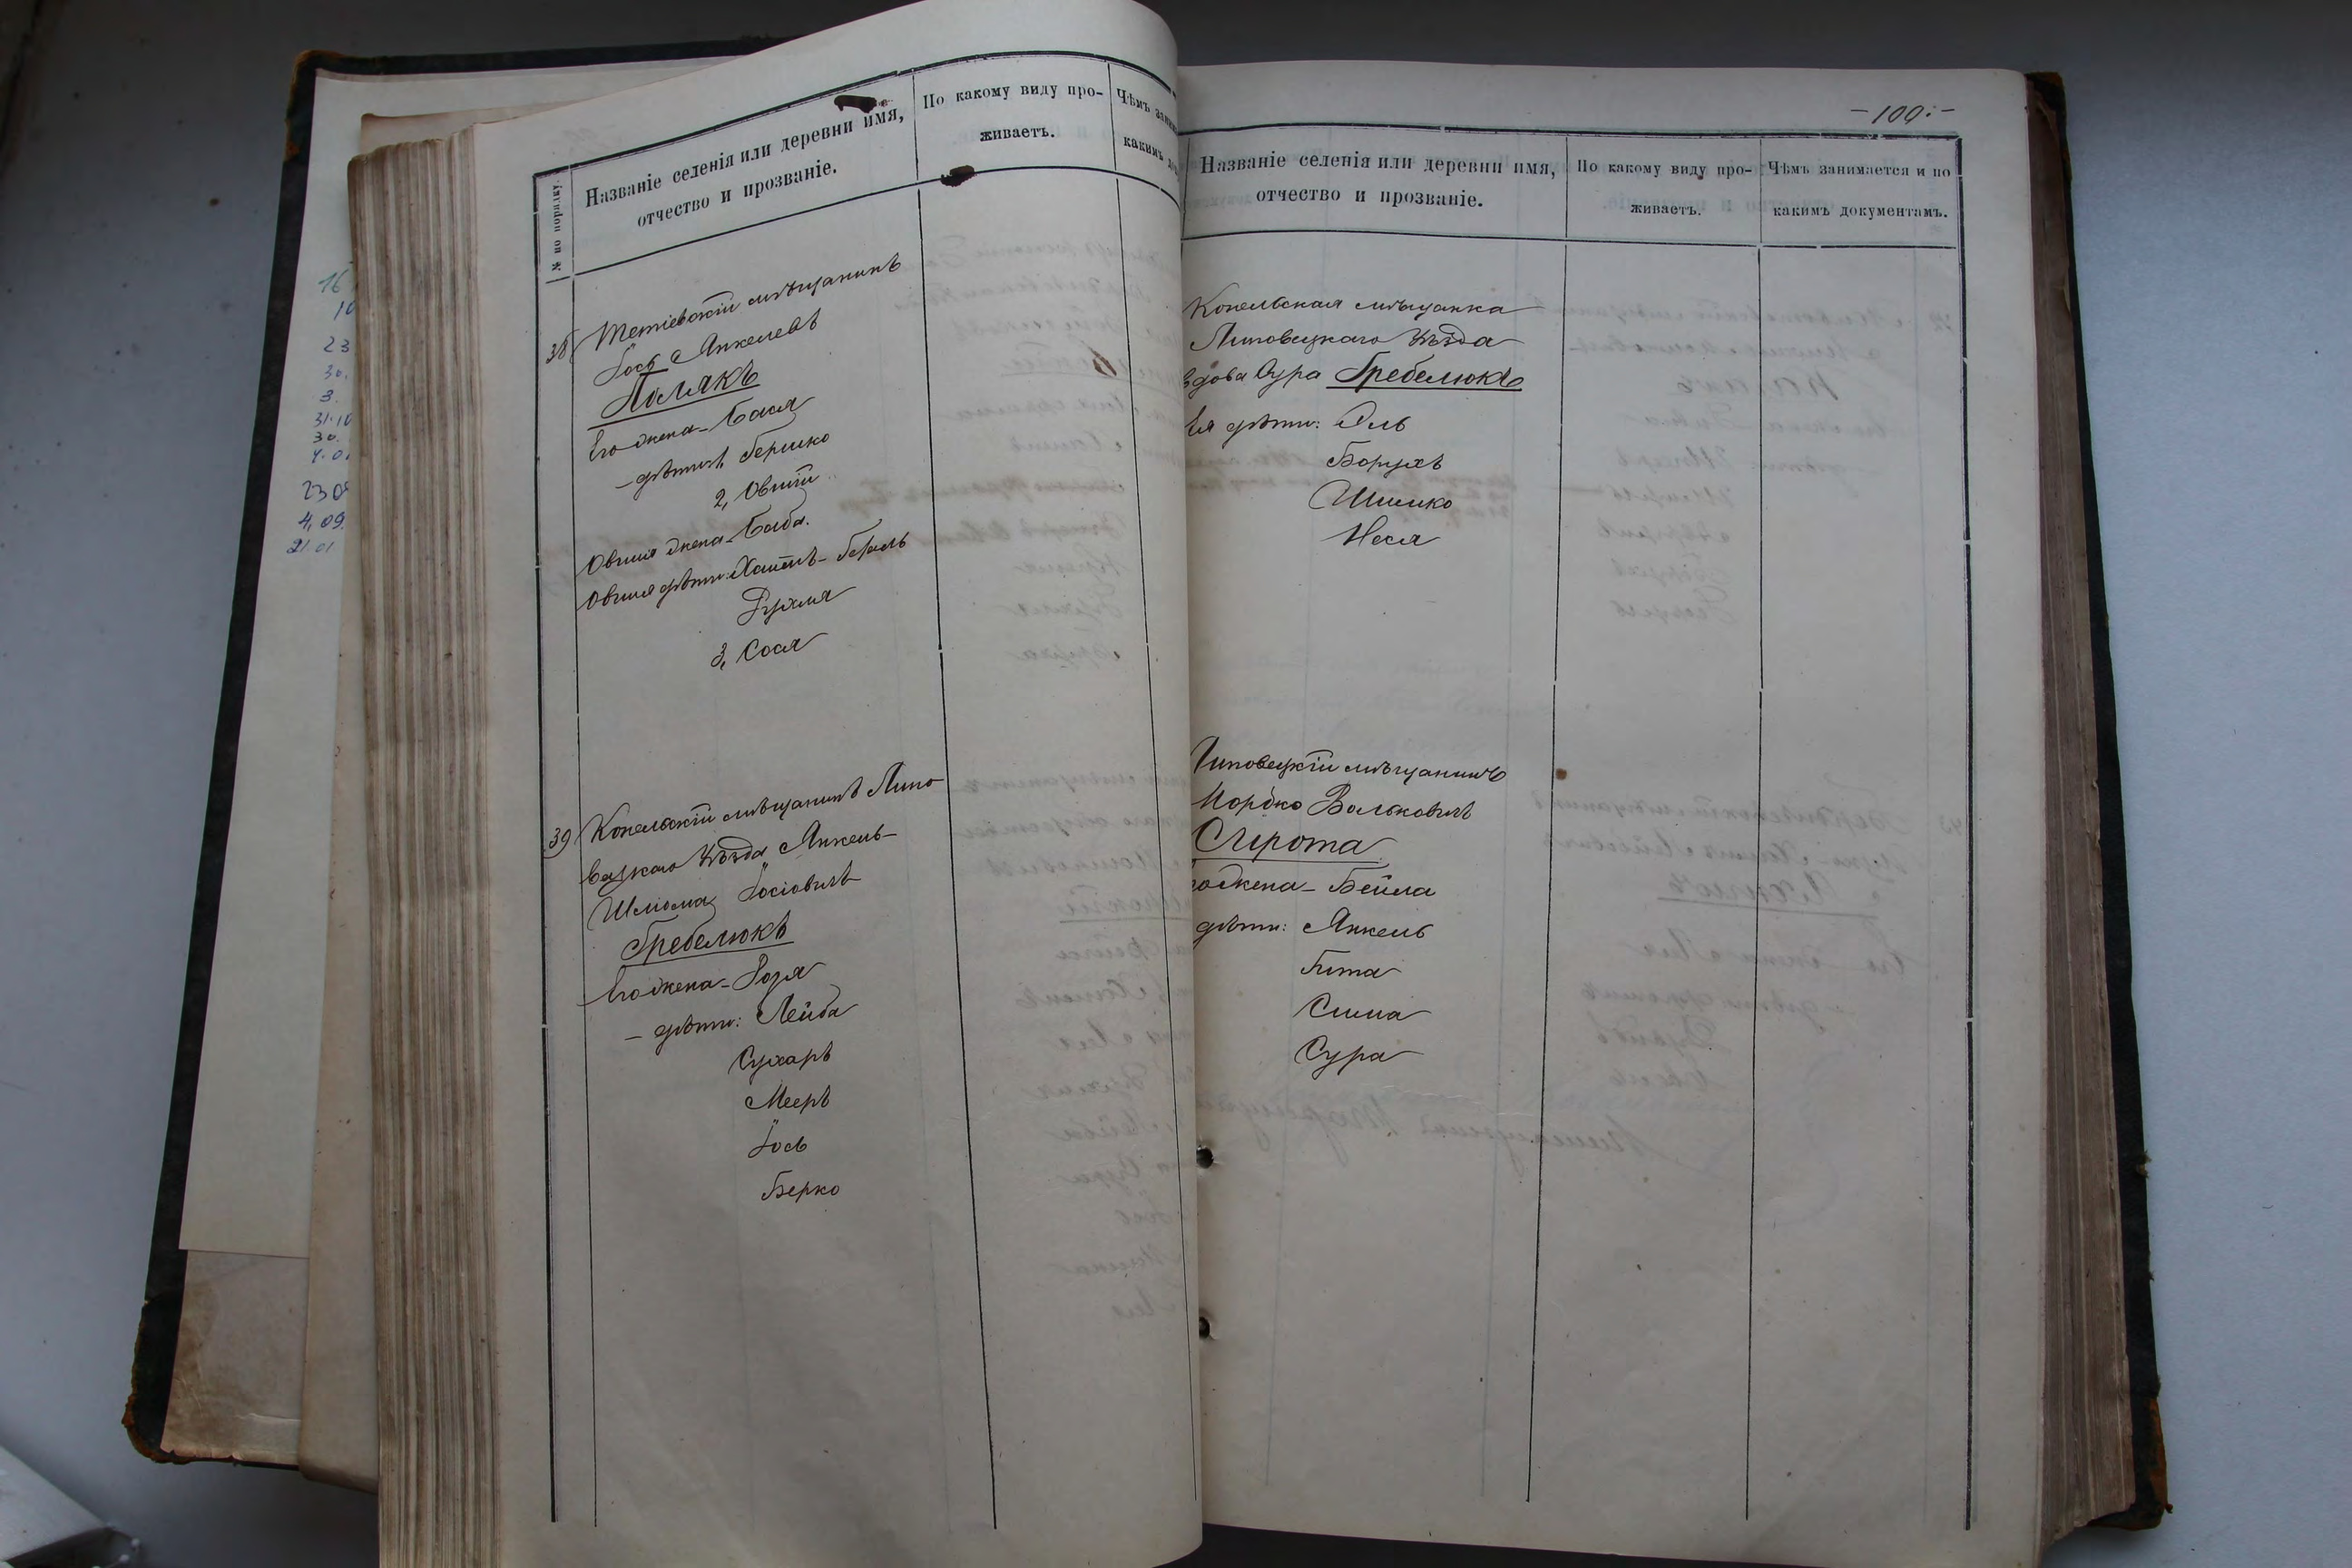 № по порядку.
Названіе селенія или деревни имя,
отчество и прозваніе.
По какому виду про-
живаетъ.
Чѣмъ
какимъ
38
Тетіевскій мѣщанинъ
Іось Янкелевъ
Полякъ
Его жена - Бася
- дѣти: 1, Бершко
2, Овшій
Овшія жена - Баба.
Овшія дѣти: - Берель
Рухля
3, Сося
39
Конельскій мѣщанинъ Липо-
вецкаго Уѣзда Янкель-
Шліома Іосіовичъ
Гребелюкъ
Его жена - Розя
- дѣти: Лейба
Сухаръ
Мееръ
Іось
Берко
16
10
23
30.
3.
31.10
30.
4.0
230
4,09.
21.01
- 100: -
Названіе селенія или деревни имя,
отчество и прозваніе.
По какому виду про-
живаетъ.
Чѣмъ занимается и по
какимъ документамъ.
Конельская мѣщанка
Липовецкаго Уѣзда
вдова Сура Гребелюкъ
Ея дѣти:
Борухъ
Шимко
Неся
Липовецкій мѣщанинъ
Мордко Вольковичъ
Сирота
жена - Бейла
дѣти: Янкель
Гита
Сима
Сура